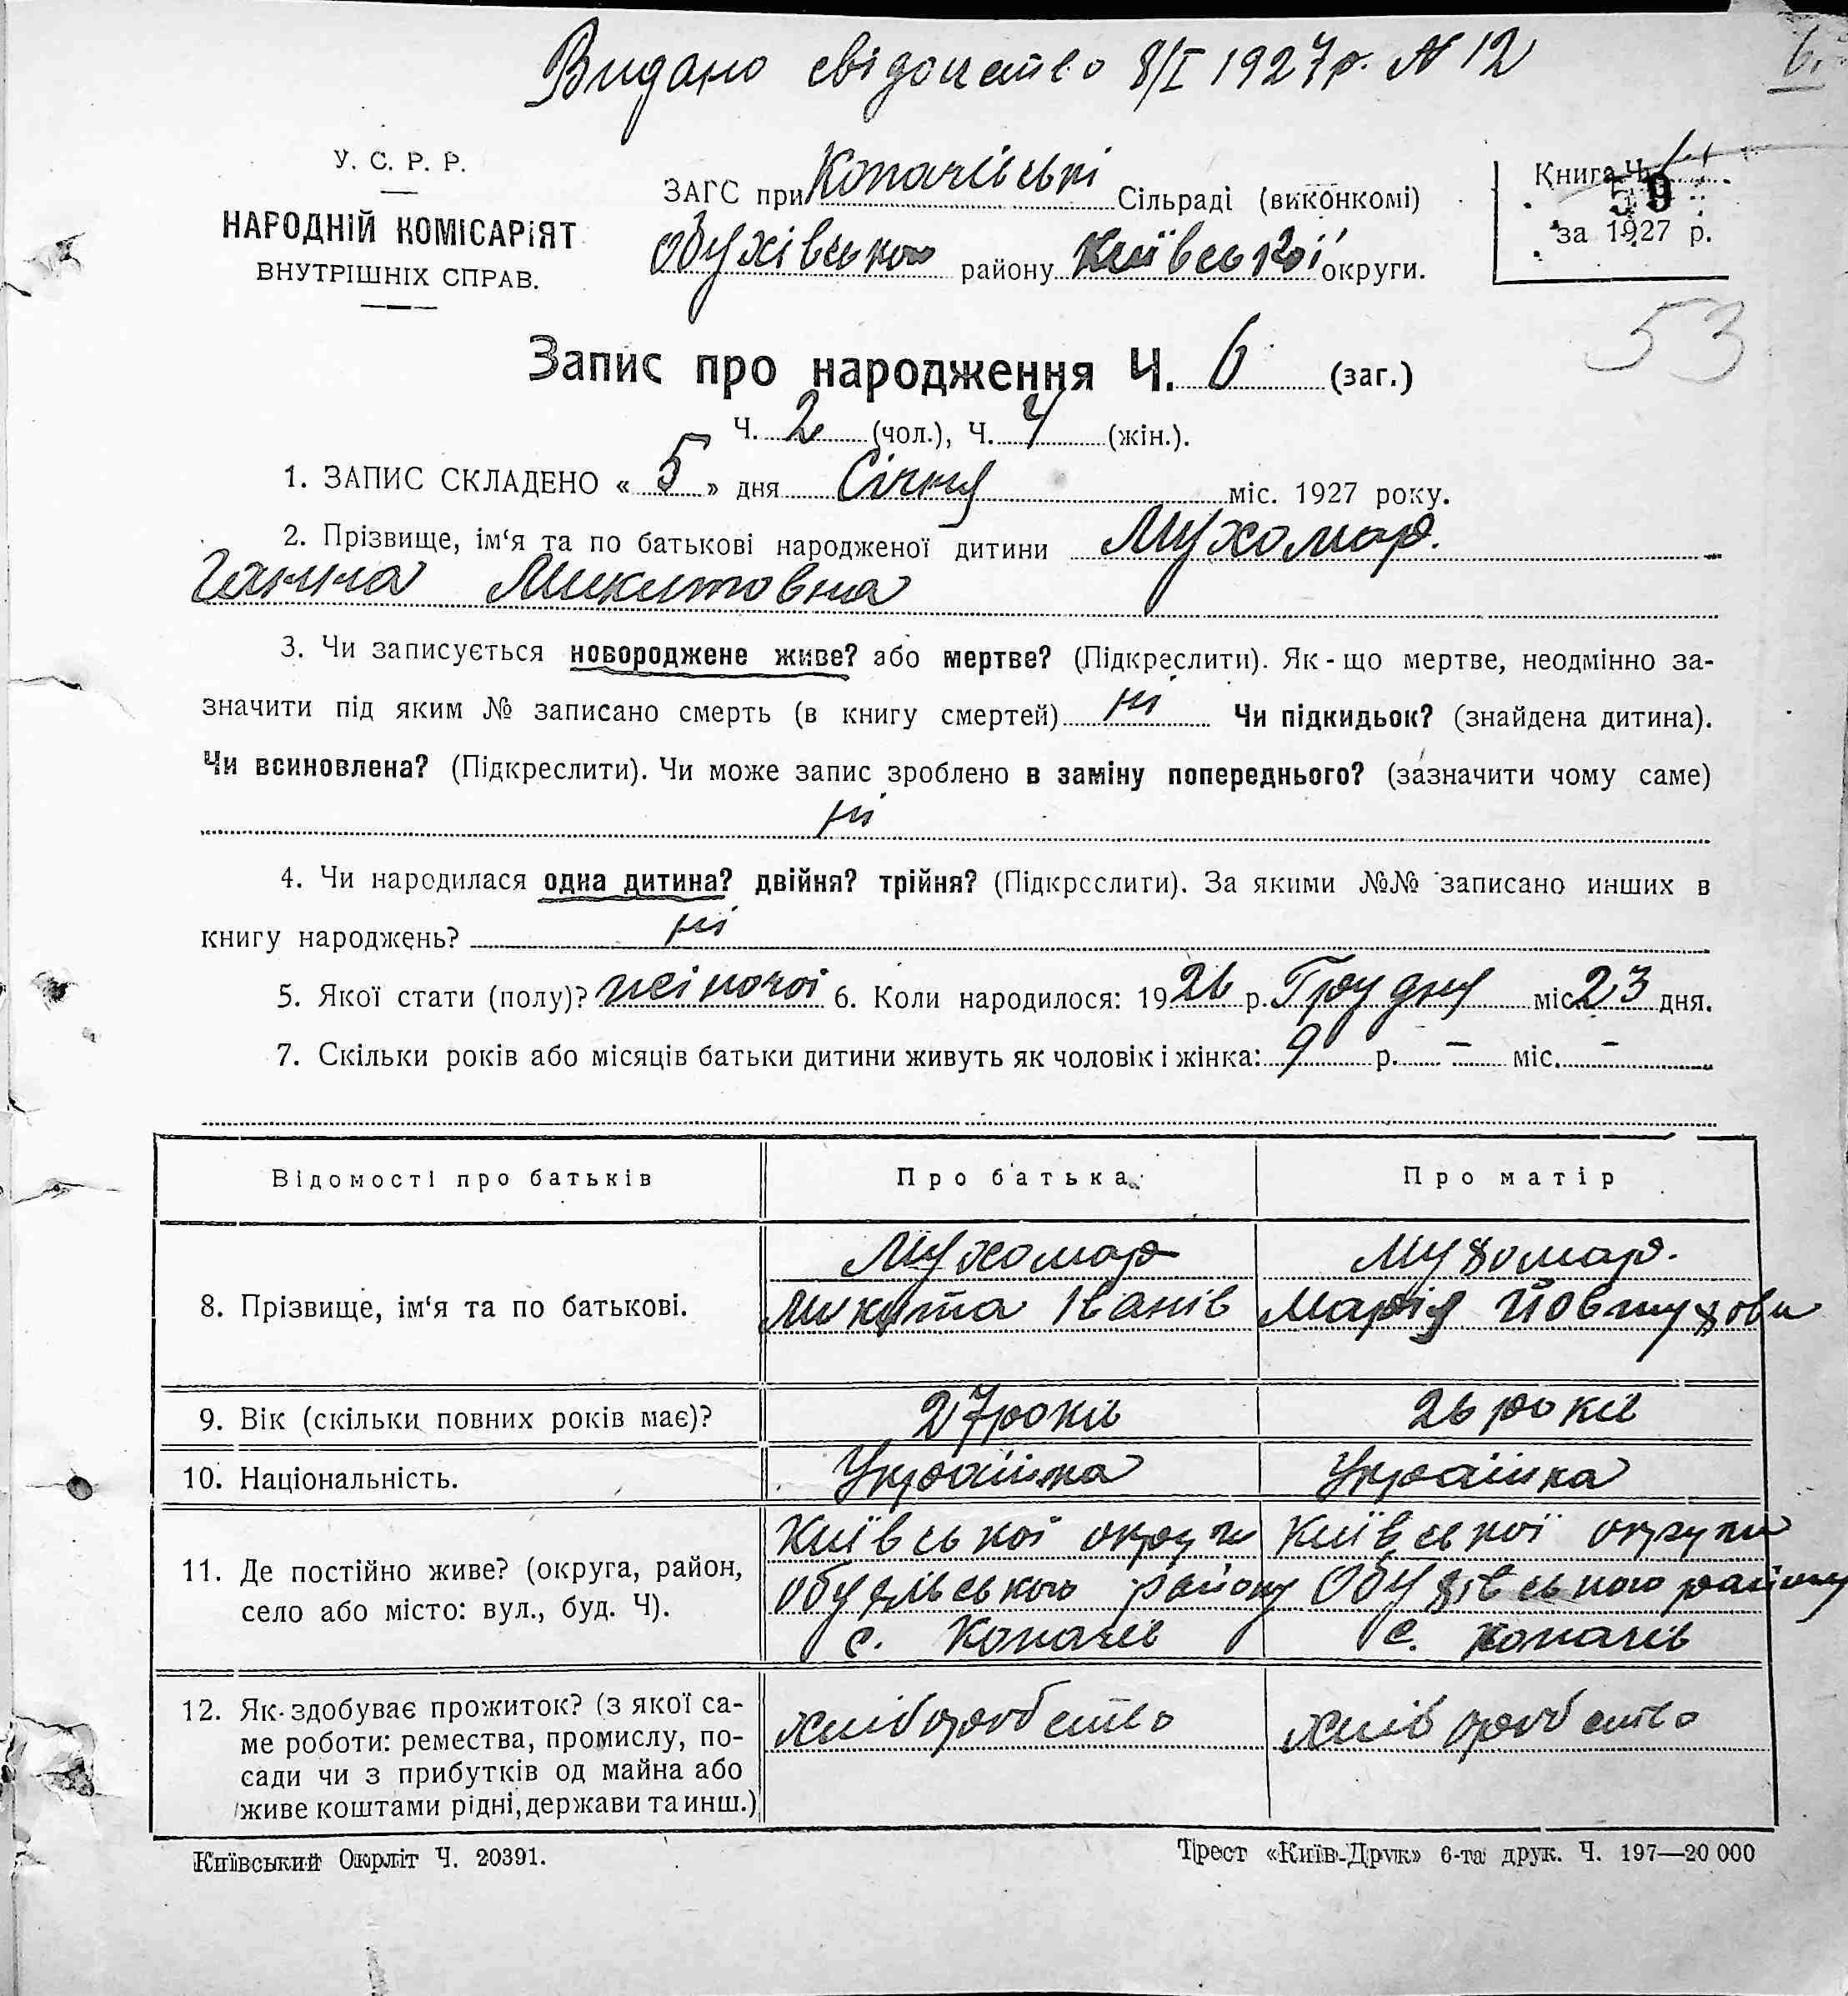 Видано свідоцтво 8/I 1927р. № 12
6.
У. С. Р. Р.
НАРОДНІЙ КОМІСАРІЯТ
ВНУТРІШНІХ СПРАВ.
ЗАГС при Копачівські Сільраді (виконкомі)
Обухівського району Київської округи.
Книга Ч.
59
за 1927 р.
53
Запис про народження Ч. 6 (заг.)
Ч. 2 (чол.), Ч. 4 (жін.).
1. ЗАПИС СКЛАДЕНО « 5 » дня Січня міс. 1927 року.
2. Прізвище, ім‘я та по батькові народженої дитини Мухомар.
Ганна Микитовна
3. Чи записується новороджене живе? або мертве? (Підкреслити). Як-що мертве, неодмінно за-
значити під яким № записано смерть (в книгу смертей) ні Чи підкидьок? (знайдена дитина).
Чи всиновлена? (Підкреслити). Чи може запис зроблено в заміну попереднього? (зазначити чому саме)
ні
4. Чи народилася одна дитина? двійня? трійня? (Підкрсслити). За якими №№ записано инших в
книгу народжень? ні
5. Якої стати (полу)? жіночої 6. Коли народилося: 1926 р. Грудня міс. 23 дня.
7. Скільки років або місяців батьки дитини живуть як чоловік і жінка: 9 р. – міс. –
Відомості про батьків Про батька Про матір
8. Прізвище, ім‘я та по батькові.
Мухомар
Микита Іванів
Мухомар.
Марія Йовтухови
9. Вік (скільки повних років має)? 27 років 26 років
10. Національність. Українка Українка
11. Де постійно живе? (округа, район,
село або місто: вул., буд. Ч).
Київської округи
Обухівського району
с. Копачів
Київської округи
Обухівського району
с. Копачів
12. Як здобуває прожиток? (з якої са-
ме роботи: ремества, промислу, по-
сади чи з прибутків од майна або
живе коштами рідні, держави та инш.)
хліборобство
хліборобство
Київський Окрліт Ч. 20391.
Трест «Київ-Друк» 6-та друк. Ч. 197—20 000